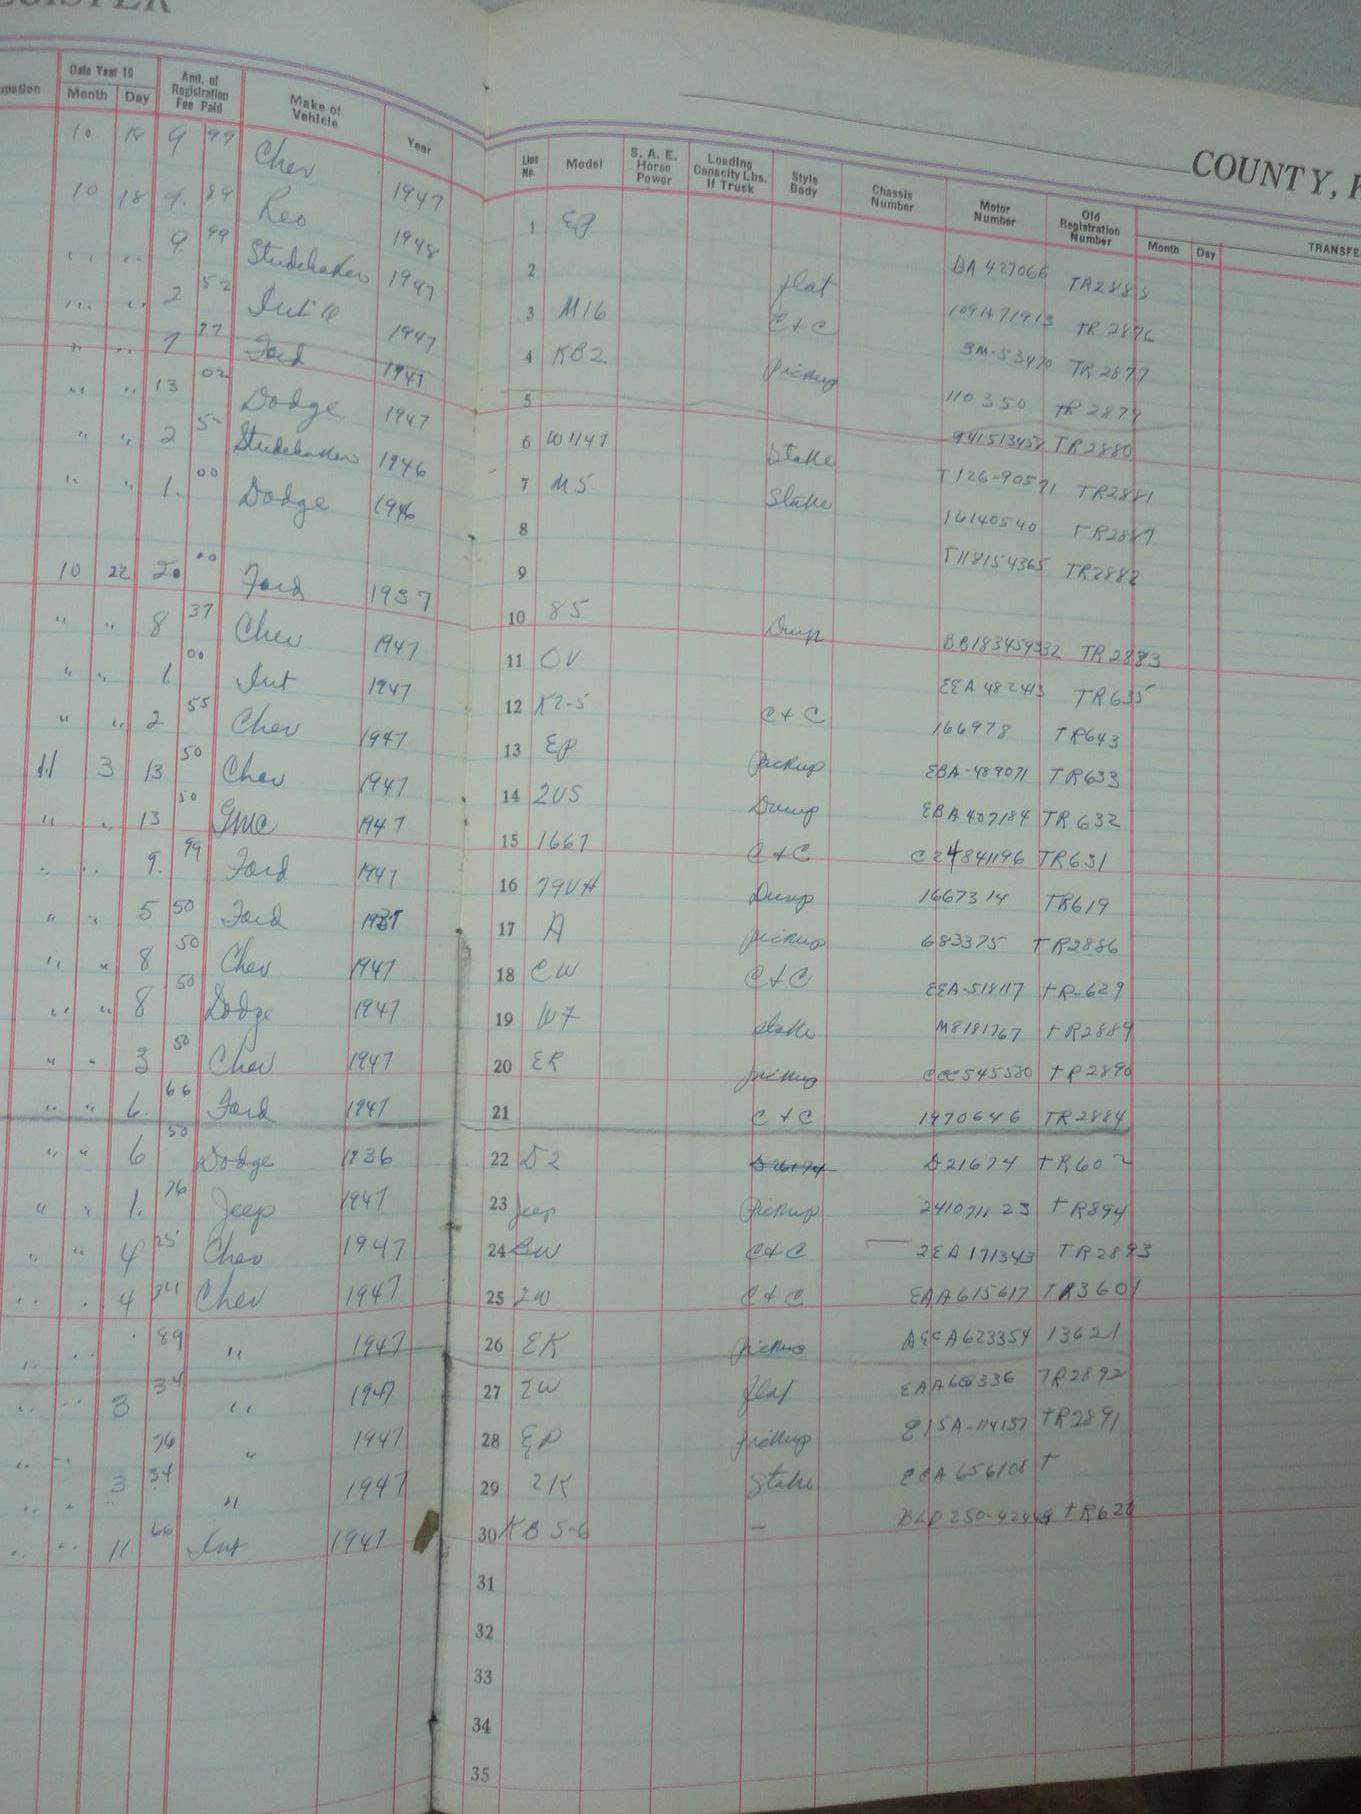 GISTER
COUNTY, K
upation Date Year 19 Month Day Amt. of Registration Fee Paid Make of Vehicle Year
Line No. Model S. A. E. Horse Power Loading Capacity Lbs. If Truck Style Body Chassis Number Motor Number Old Registration Number Month Day TRANSFE
10 18 9 99 Chev 1947 1 EP
10 18 9. 89 Reo 1948 2 flat BA 427066 TR2885
" " 9. 99 Studebaker 1947 3 M16 C + C 109A71913 TR 2876
" " 2 52 Int'l 1947 4 KB2 Pickup 3M-53470 TR 2877
" " 7 77 Ford 1947 5 110350 TR 2879
" " 13 02 Dodge 1947 6 W1147 Stake 941513458 TR2880
" " 2 5- Studebaker 1946 7 M5 Stake T126-90571 TR2881
" " 1. 00 Dodge 1946 8 16140540 TR2887
9 T118154365 TR2882
10 22 20 00 Ford 1937 10 85 Dump BB183459332 TR 2883
" " 8 37 Chev 1947 11 OV EEA 482413 TR635
" " 1. 00 Int 1947 12 K2-5 C + C 166978 TR643
" " 2 55 Chev 1947 13 EP Pickup EBA-489071 TR633
11 3 13 50 Chev 1947 14 2US Dump EBA407184 TR 632
" " 13 50 GMC 1947 15 1667 C + C C24841196 TR631
" " 9. 99 Ford 1947 16 79VH Dump 1667314 TR619
" " 5 50 Ford 17 A pickup 683375 TR2886
" " 8 50 Chev 1947 18 CW C + C EEA-518117 TR-629
" " 8 50 Dodge 1947 19 W7 Stake M8181767 TR2889
" " 3 50 Chev 1947 20 ER pickup CCC545580 TR2890
" " 6. 66 Ford 1947 21 C + C 1970646 TR2884
" " 6 50 Dodge 1936 22 D2 D21674 TR602
" " 1. 76 Jeep 1947 23 Jeep Pickup 241071123 TR894
" " 4 25 Chev 1947 24 BW C + C 2EA171343 TR2893
" " 4 34 Chev 1947 25 2W C + C EAA615617 TR3601
" " 89 " 1947 26 EK pickup DECA623354 13621
" " 3 34 " 1947 27 2W flat TR2892
" " 76 " 1947 28 EP pickup E15A-114157 TR2891
" " 3 34 " 1947 29 2K Stake ECA656108 T
" " 11 66 Int 1947 30 KB 5-6 — BLD250-42448 TR620
31
32
33
34
35